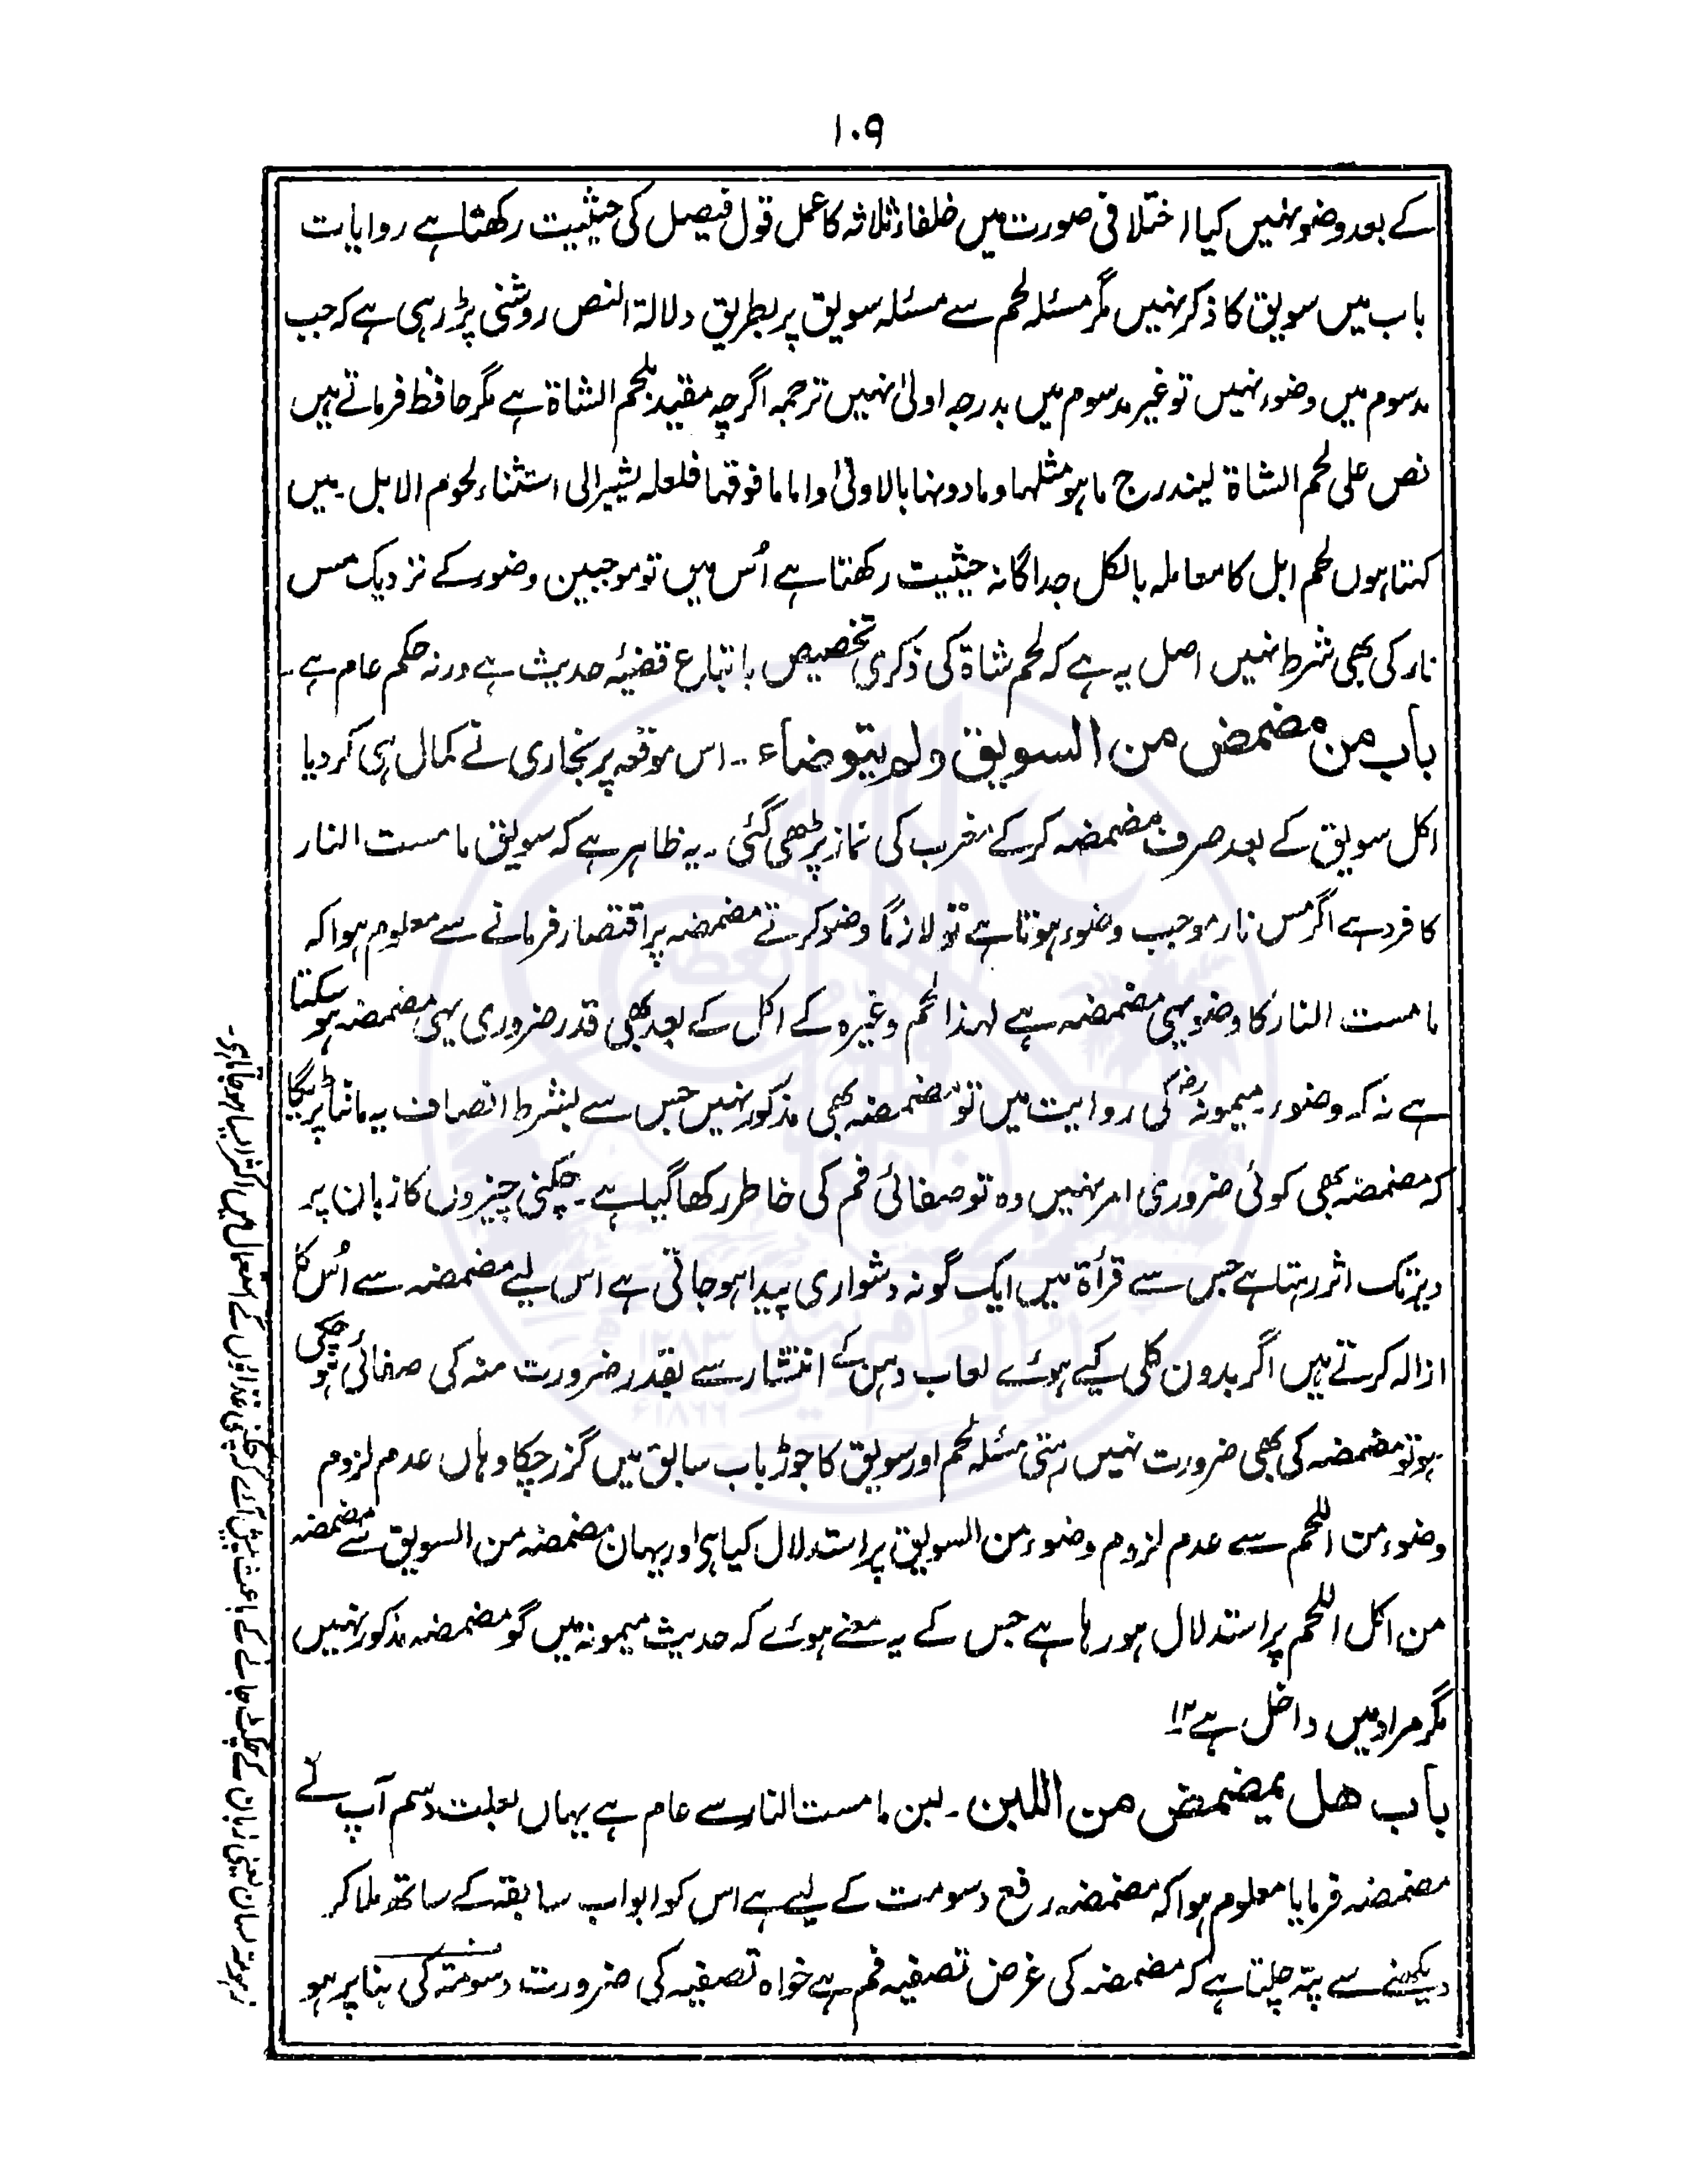 ۱۰۹
کے بعد وضو نہیں کیا اختلافی صورت میں خلفاء ثلاثہ کا عمل قول فیصل کی حیثیت رکھتا ہے روایات
باب میں سویق کا ذکر نہیں مگر مسئلہ لحم سے مسئلہ سویق پر بطریق دلالۃ النص روشنی پڑ رہی ہے کہ جب
مدسوم میں وضوء نہیں تو غیر مدسوم میں بدرجہ اولیٰ نہیں ترجمہ اگرچہ مقید بلحم الشاۃ ہے مگر حافظ فرماتے ہیں
نص علی لحم الشاۃ لیندرج ما ہو مثلہا وما دونہا بالاولیٰ واما ما فوقہا فلعلہ یشیر الی استثناء لحوم الابل۔ میں
کہتا ہوں لحم ابل کا معاملہ بالکل جداگانہ حیثیت رکھتا ہے اُس میں تو موجبین وضور کے نزدیک مس
نار کی بھی شرط نہیں اصل یہ ہے کہ لحم شاۃ کی ذکری تخصیص باتباع قضیۂ حدیث ہے ورنہ حکم عام ہے۔
باب من مضمض من السویق ولم یتوضاء ۔۔ اس موقعہ پر بخاری نے کمال ہی کر دیا
اکل سویق کے بعد صرف مضمضہ کر کے مغرب کی نماز پڑھی گئی ۔ یہ ظاہر ہے کہ سویق ما مست النار
کا فرد ہے اگر مس نار موجب وضوء ہوتا ہے تو لازماً وضو کرتے مضمضہ پر اقتصار فرمانے سے معلوم ہوا کہ
ما مست النار کا وضو یہی مضمضہ ہے لہذا لحم وغیرہ کے اکل کے بعد بھی قدر ضروری یہی مضمضہ ہو سکتا
ہے نہ کہ وضوء۔ میمونہ رضؓ کی روایت میں تو مضمضہ بھی مذکور نہیں جس سے بشرط انصاف یہ ماننا پڑیگا
کہ مضمضہ بھی کوئی ضروری امر نہیں وہ تو صفائی فم کی خاطر رکھا گیا ہے ۔ چکنی چیزوں کا زبان پر
دیر تک اثر رہتا ہے جس سے قرأۃ میں ایک گونہ دشواری پیدا ہو جاتی ہے اس لیے مضمضہ سے اُس کا
ازالہ کرتے ہیں اگر بدون کلی کیے ہوئے لعاب دہن کے انتشار سے بقدر ضرورت منہ کی صفائی ہو چکی
ہو تو مضمضہ کی بھی ضرورت نہیں رہتی مسئلہ لحم اور سویق کا جوڑ باب سابق میں گزر چکا وہاں عدم لزوم
وضوء من اللحم سے عدم لزوم وضوء من السویق پر استدلال کیا ہی اور یہاں مضمضہ من السویق سے مضمضہ
من اکل اللحم پر استدلال ہو رہا ہے جس کے یہ معنے ہوئے کہ حدیث میمونہ میں گو مضمضہ مذکور نہیں
مگر مراد میں داخل ہے ۱۲
باب ھل یمضمض من اللبن ۔ لبن ما مست النار سے عام ہے یہاں بعلت دسم آپ نے
مضمضہ فرمایا معلوم ہوا کہ مضمضہ رفع دسومت کے لیے ہے اس کو ابواب سابقہ کے ساتھ ملا کر
دیکھنے سے پتہ چلتا ہے کہ مضمضہ کی غرض تصفیہ فم ہے خواہ تصفیہ کی ضرورت دسومۃ کی بنا پر ہو